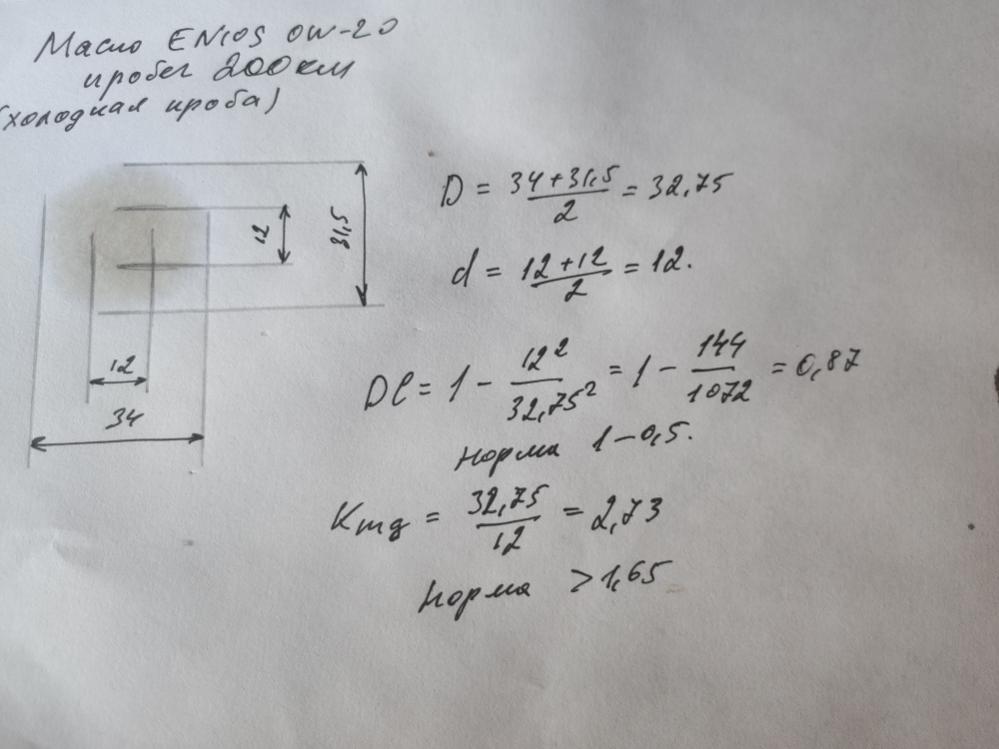 Масло ENIOS 0W-20
пробег 200км
(холодная проба)
D = 34+31,5 / 2 = 32,75
12
31,5
d = 12+12 / 2 = 12.
12
34
Dl = 1 - 12² / 32,75² = 1 - 144 / 1072 = 0,87
норма 1-0,5.
Kтд = 32,75 / 12 = 2,73
норма >1,65